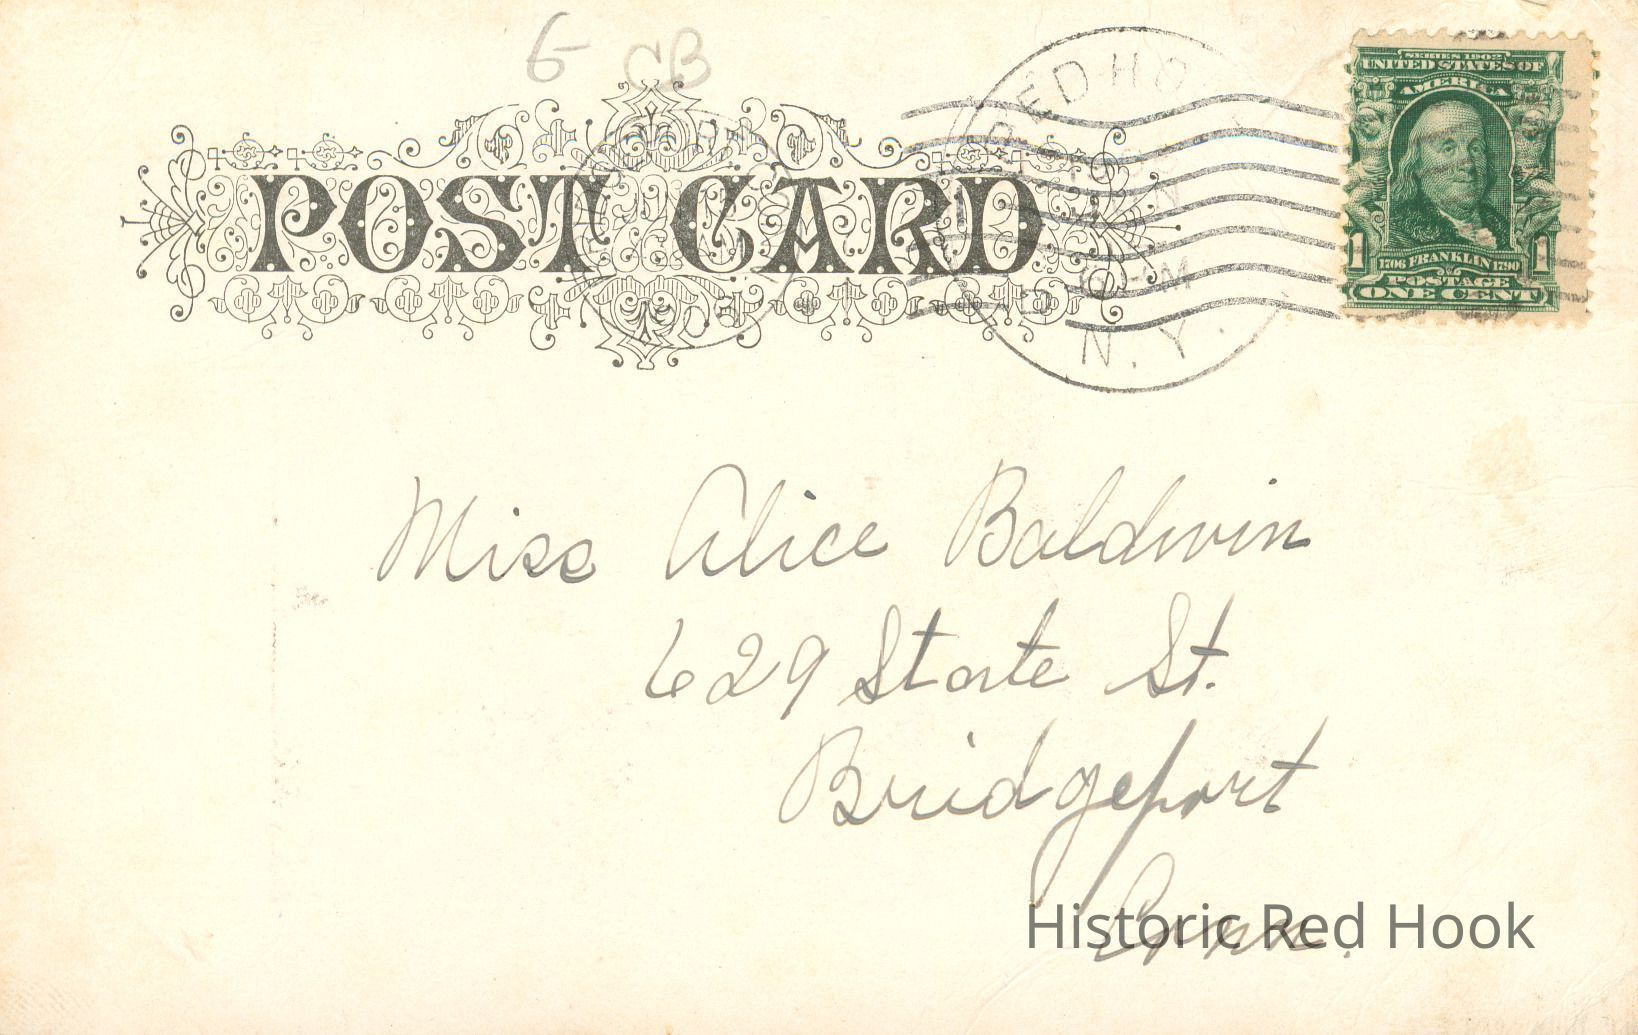 6 CB
POST CARD
RED HO
N.Y.
SERIES 1902
UNITED STATES OF
AMERICA
1 1706 FRANKLIN 1790 1
POSTAGE
ONE CENT
Miss Alice Baldwin
629 State St.
Bridgeport
Conn.
Historic Red Hook